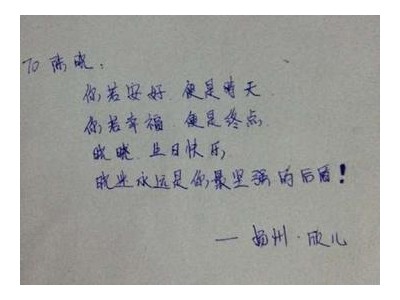 TO 陈晓：
你若安好 便是晴天
你若幸福 便是终点
晓晓 生日快乐
晓迷永远是你最坚强的后盾！
— 扬州·欣儿